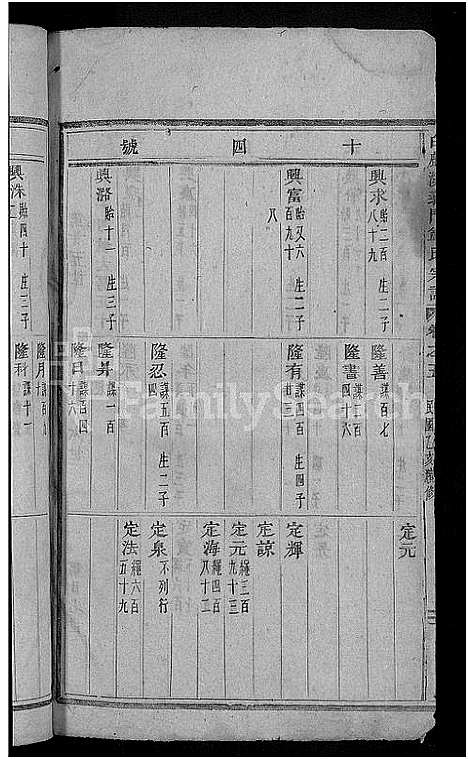 十四號
興求 貽二百八十九 生二子
興富 貽又六百九十八 生二子
興潞 貽十二 生三子
隆善 謀百七
隆書 謀四十六
隆有 謀四百廿 生四子
隆忍 謀五百四 生二子
隆昇 謀一百
隆日 謀百四十六
定元
定輝
定諒
定元 繩三百九十三
定海 繩四百八十二
定泉 不列行
定法 繩六百五十九
民國乙亥
興洙 四十 生二子
隆月 十
隆科 謀十一
FamilySearch